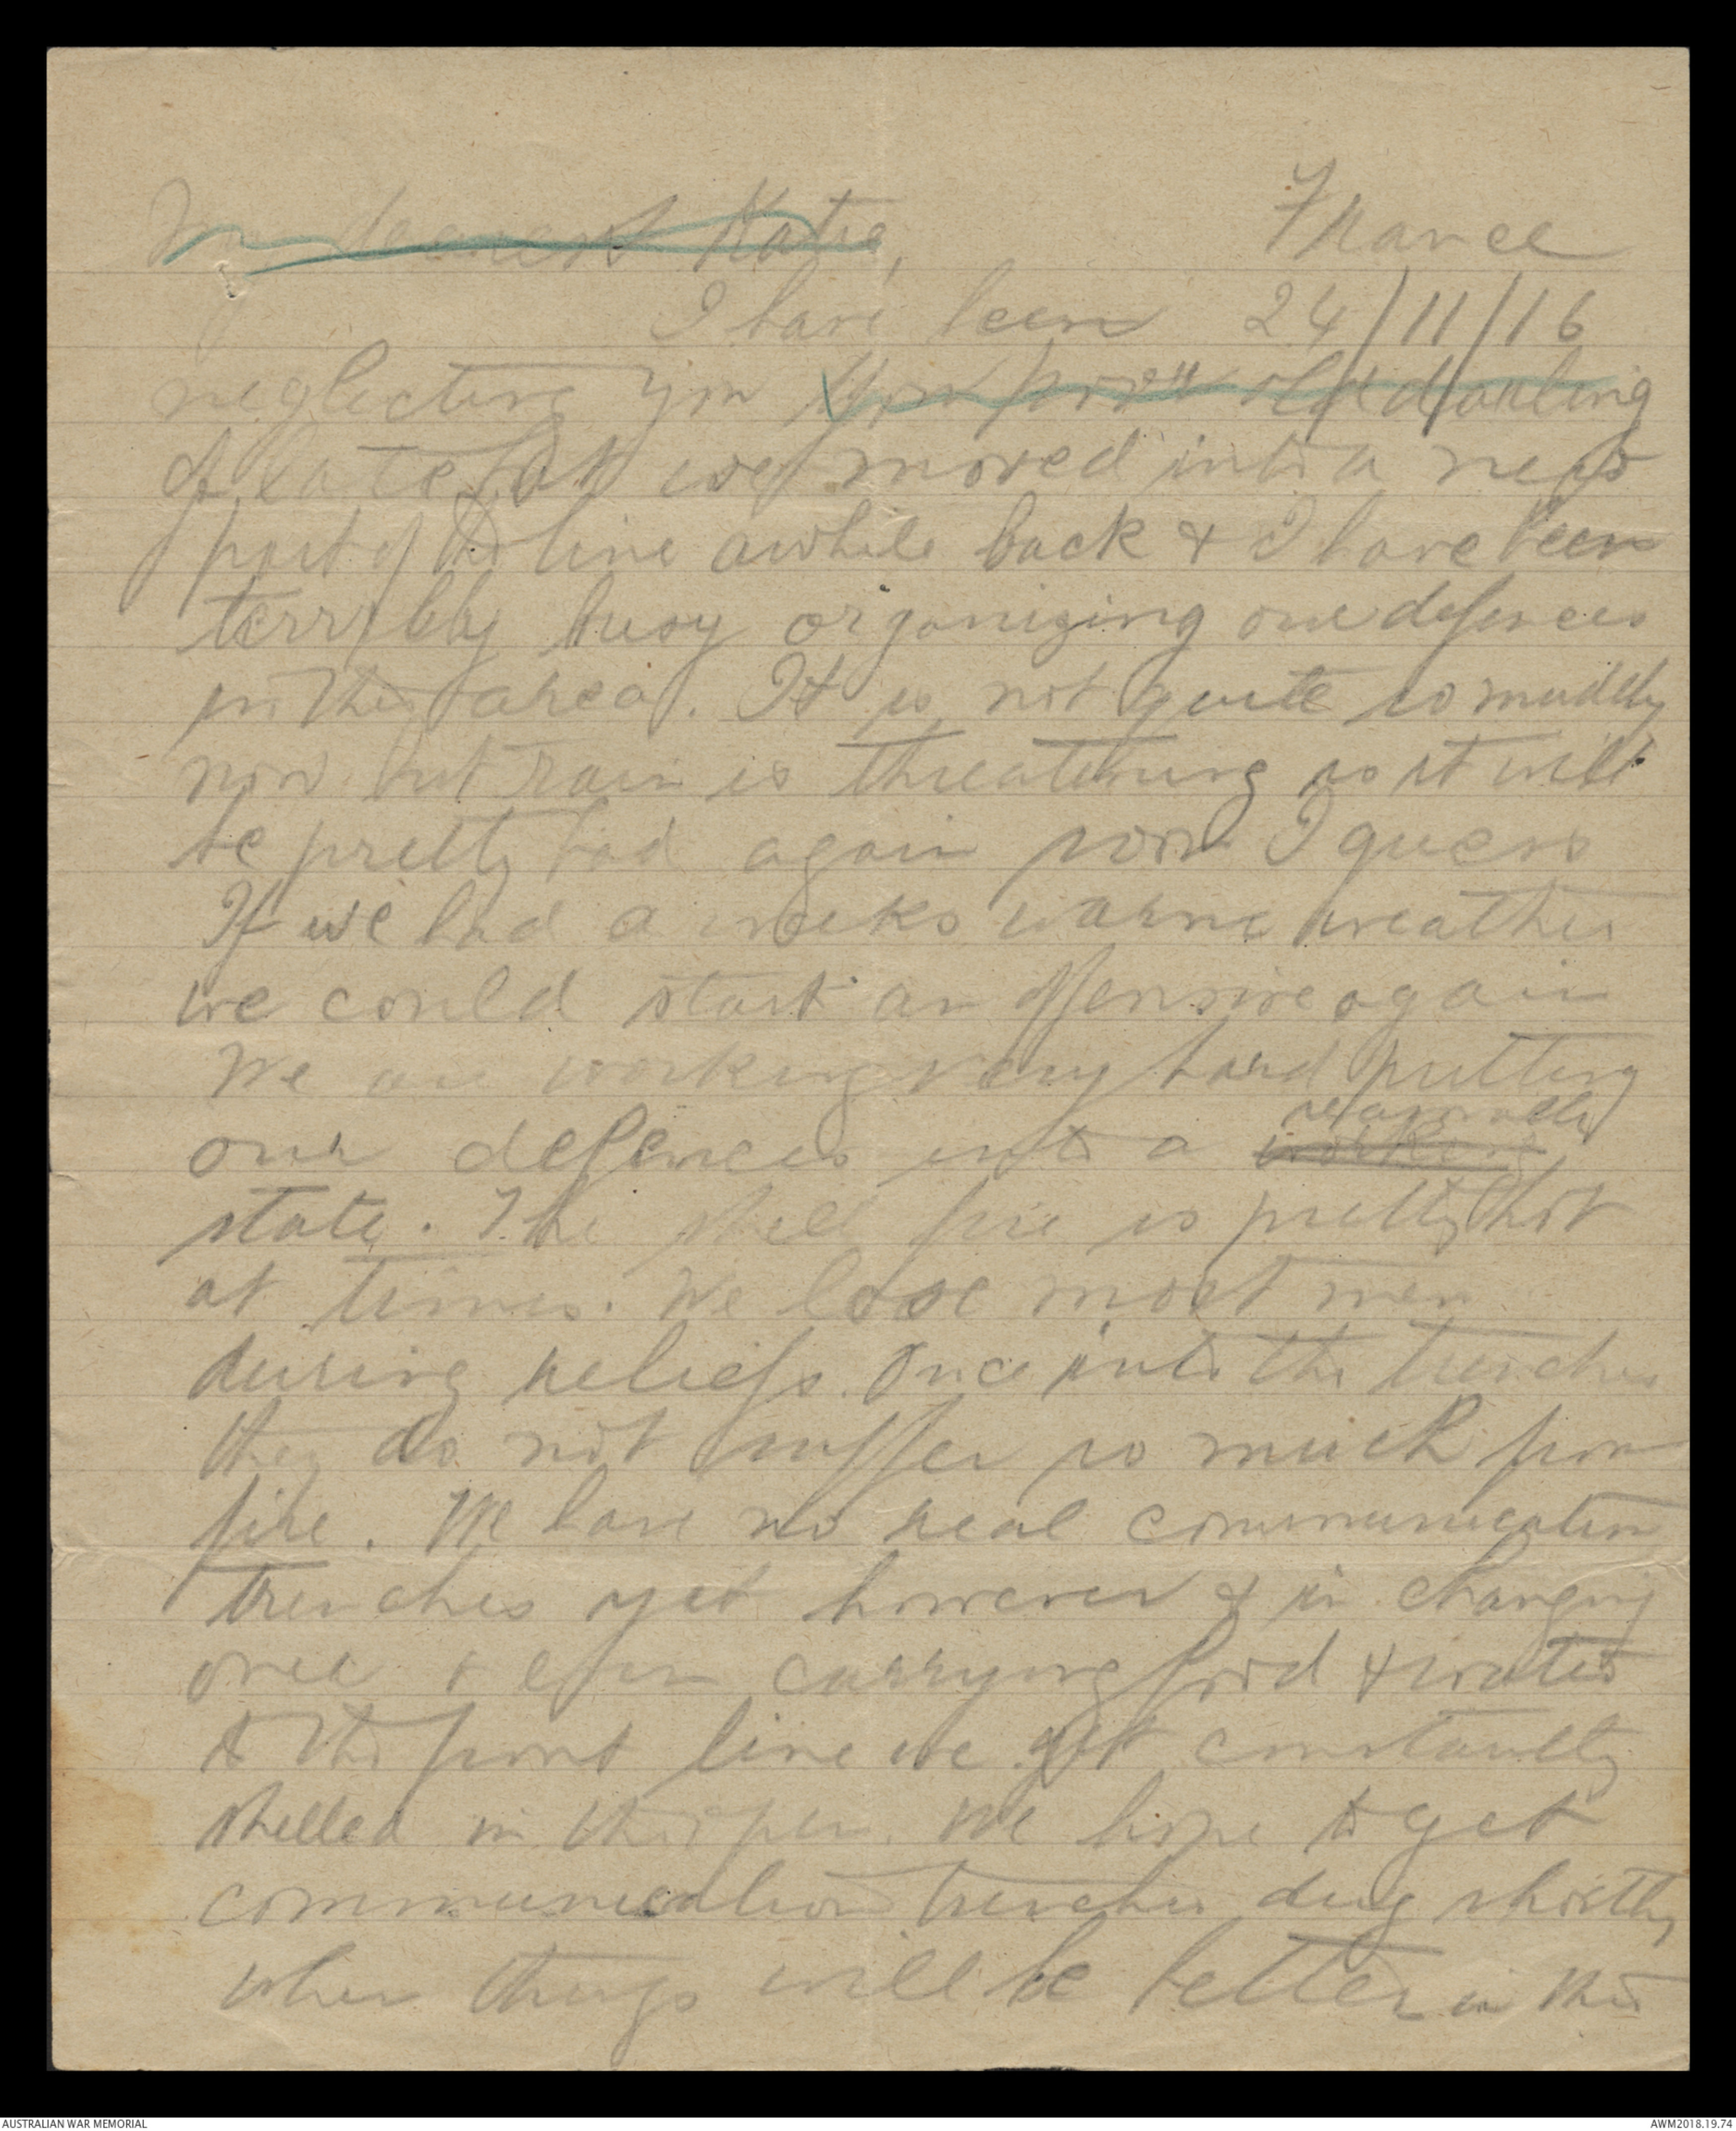 My dearest Katie,
France
I have been 24/11/16
neglecting you you poor old darling
of late but we moved into a new
part of the line awhile back & I have been
terribly busy organizing our defences
in this area. It is not quite so muddy
now but rain is threatening so it will
be pretty bad again soon I guess
If we had a weeks warm weather
we could start an offensive again
We are working very hard putting
reasonable
our defences into a working
state. The shell fire is pretty hot
at times. We lose most men
during reliefs. Once into the trenches
they do not suffer so much from
fire. We have no real communication
trenches yet however & in changing
over & even carrying food & water
to the front line we get constantly
shelled in the open. We hope to get
communication trenches dug shortly
when things will be better in this
AUSTRALIAN WAR MEMORIAL
AWM2018.19.74